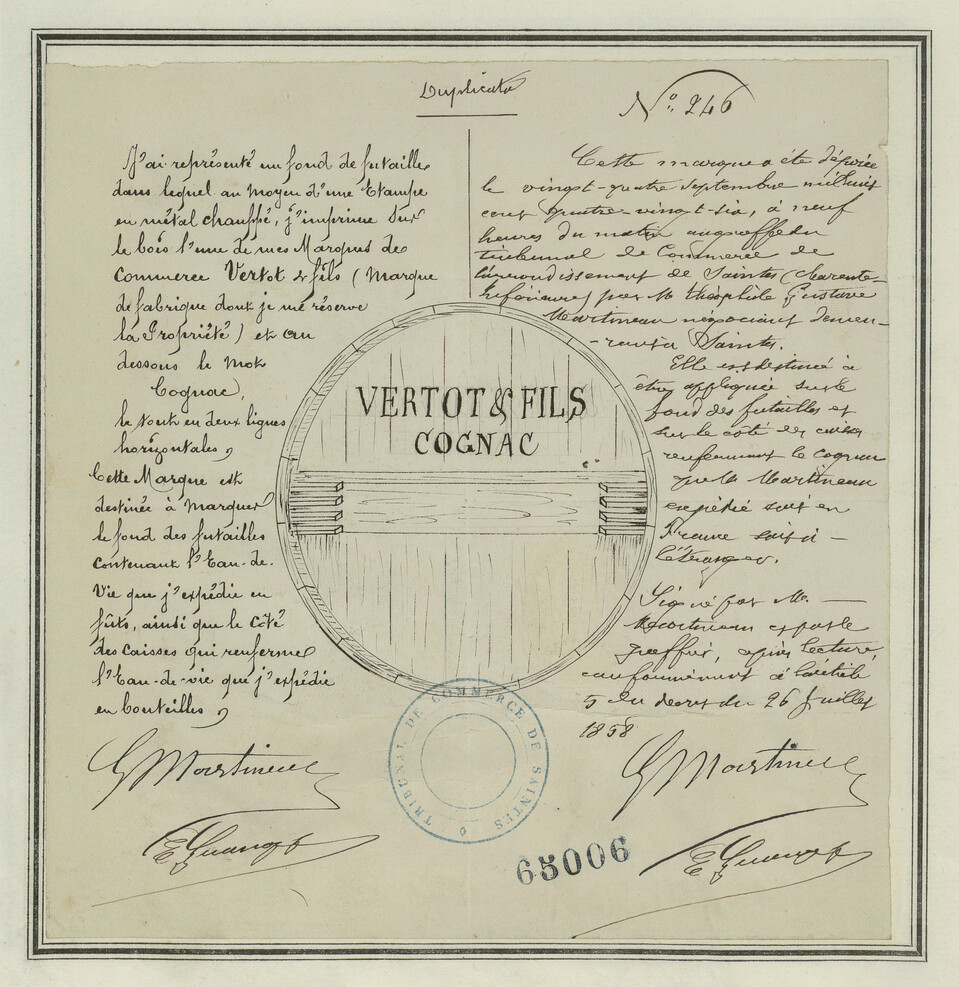 Duplicata
N° 246
J'ai représenté un fond de futailles
dans lequel au moyen d'une Etampe
en métal chauffé, j'imprime sur
le bois l'une de mes Marques de
Commerce Vertot & fils (Marque
de fabrique dont je me réserve
la Propriété) et au
dessous le mot
Cognac,
le tout en deux lignes
horizontales,
Cette Marque est
destinée à marquer
le fond des futailles
contenant l'Eau-de-
Vie que j'expédie en
fûts, ainsi que le côté
des caisses qui renferme
l'Eau-de-vie que j'expédie
en bouteilles,
G Martineau
Cette marque a été déposée
le vingt-quatre septembre mil huit
cent quatre-vingt-six, à neuf
heures du matin au greffe du
tribunal de Commerce de
l'arrondissement de Saintes (Charente-
Inférieure) par M. Théophile Gustave
Martineau négociant demeu-
-rant à Saintes.
Elle est destinée à
être appliquée sur le
fond des futailles et
sur le côté des caisses
renfermant le cognac
que M. Martineau
expédie soit en
France soit à
l'étranger.
Signé par M.
Martineau et par le
greffier, après lecture,
conformément à l'article
5 du décret du 26 Juillet
1858
G Martineau
VERTOT & FILS
COGNAC
TRIBUNAL DE COMMERCE DE SAINTES
65006